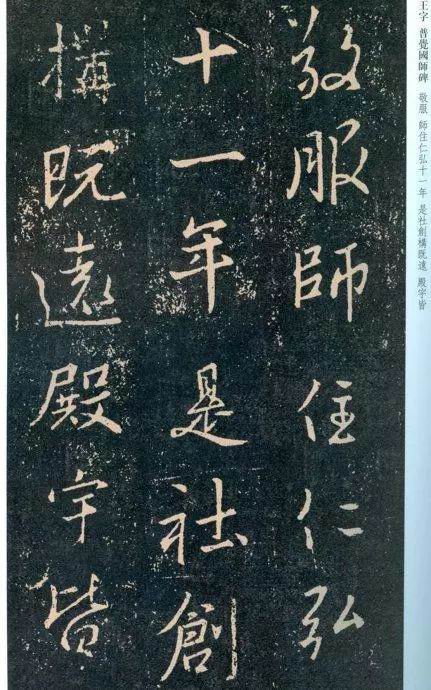 敬服師住仁弘
十一年是社創
構既遠殿宇皆
王字 普覺國師碑 敬服 師住仁弘十一年 是社創構既遠 殿宇皆